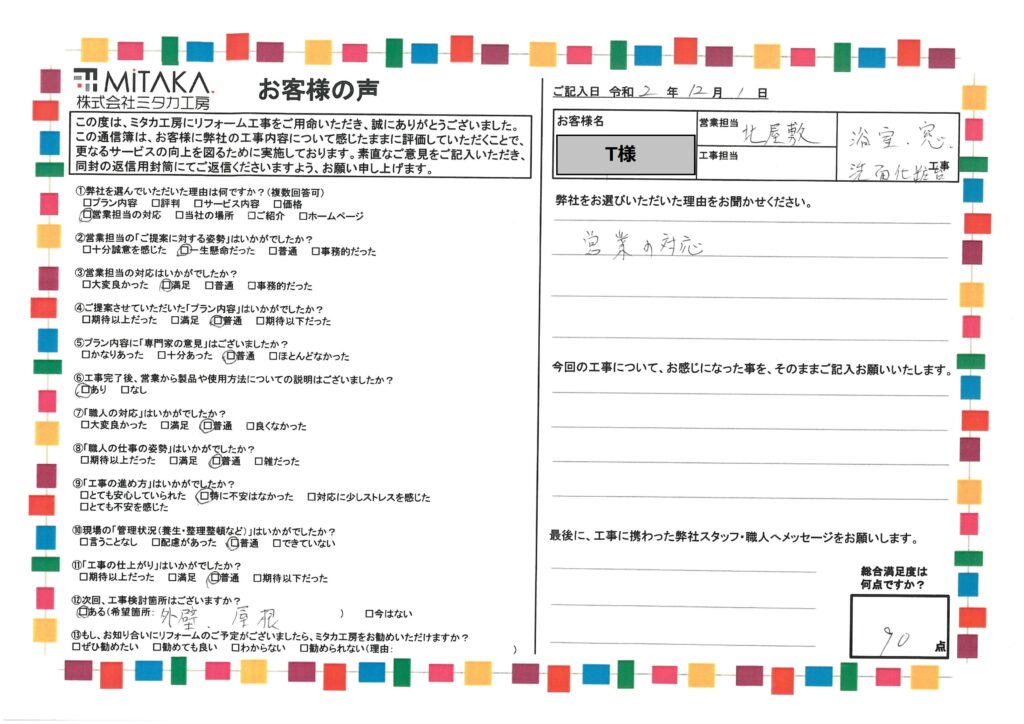 MiTAKA
株式会社ミタカ工房
お客様の声
この度は、ミタカ工房にリフォーム工事をご用命いただき、誠にありがとうございました。
この通信簿は、お客様に弊社の工事内容について感じたままに評価していただくことで、
更なるサービスの向上を図るために実施しております。素直なご意見をご記入いただき、
同封の返信用封筒にてご返信くださいますよう、お願い申し上げます。
①弊社を選んでいただいた理由は何ですか？(複数回答可)
□プラン内容 □評判 □サービス内容 □価格
□営業担当の対応 □当社の場所 □ご紹介 □ホームページ
②営業担当の「ご提案に対する姿勢」はいかがでしたか？
□十分誠意を感じた □一生懸命だった □普通 □事務的だった
③営業担当の対応はいかがでしたか？
□大変良かった □満足 □普通 □事務的だった
④ご提案させていただいた「プラン内容」はいかがでしたか？
□期待以上だった □満足 □普通 □期待以下だった
⑤プラン内容に「専門家の意見」はございましたか？
□かなりあった □十分あった □普通 □ほとんどなかった
⑥工事完了後、営業から製品や使用方法についての説明はございましたか？
□あり □なし
⑦「職人の対応」はいかがでしたか？
□大変良かった □満足 □普通 □良くなかった
⑧「職人の仕事の姿勢」はいかがでしたか？
□期待以上だった □満足 □普通 □雑だった
⑨「工事の進め方」はいかがでしたか？
□とても安心していられた □特に不安はなかった □対応に少しストレスを感じた
□とても不安を感じた
⑩現場の「管理状況(養生・整理整頓など)」はいかがでしたか？
□言うことなし □配慮があった □普通 □できていない
⑪「工事の仕上がり」はいかがでしたか？
□期待以上だった □満足 □普通 □期待以下だった
⑫次回、工事検討箇所はございますか？
□ある(希望箇所: 外壁、屋根 ) □今はない
⑬もし、お知り合いにリフォームのご予定がございましたら、ミタカ工房をお勧めいただけますか？
□ぜひ勧めたい □勧めても良い □わからない □勧められない(理由: )
ご記入日 令和 2 年 12 月 1 日
お客様名
T様
営業担当 北屋敷
工事担当
浴室、窓、
洗面化粧台 工事
弊社をお選びいただいた理由をお聞かせください。
営業の対応
今回の工事について、お感じになった事を、そのままご記入お願いいたします。
最後に、工事に携わった弊社スタッフ・職人へメッセージをお願いします。
総合満足度は
何点ですか？
90 点